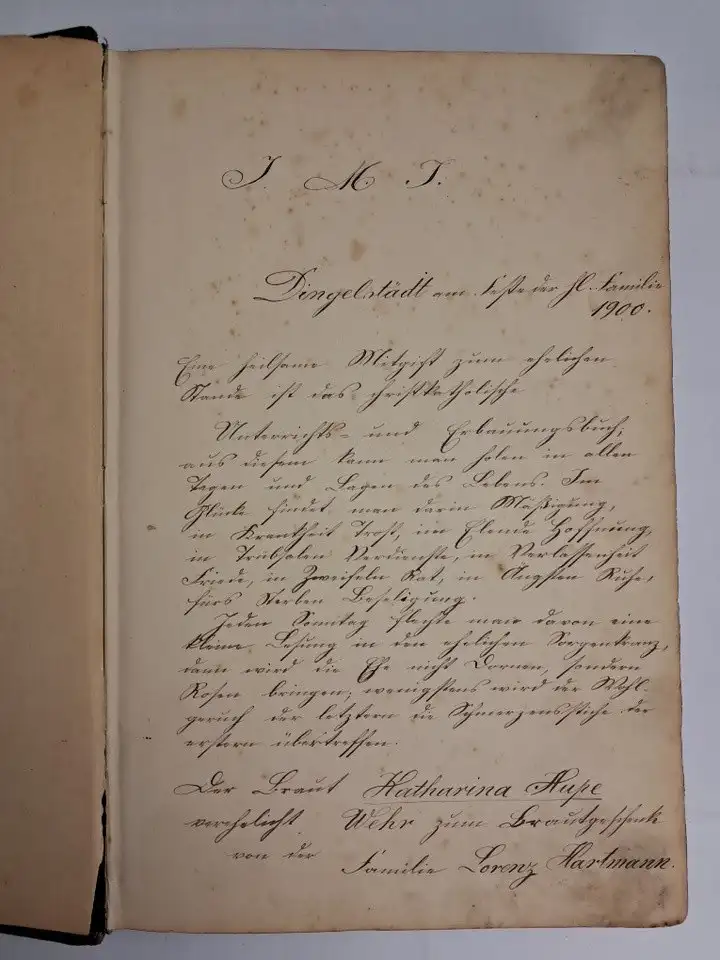 J. M. J.
Dingelstädt am Feste der hl. Familie
1900.
Eine heilsame Mitgift zum ehelichen
Stande ist das christkatholische
Unterrichts- und Erbauungsbuch;
aus diesem kann man holen in allen
Tagen und Lagen des Lebens. Im
Glücke findet man darin Mäßigung,
in Krankheit Trost, im Elende Hoffnung,
in Trübsalen Verdienste, in Verlassenheit
Friede, in Zweifeln Rat, in Ängsten Ruhe,
fürs Sterben Beseligung.
Jeden Sonntag flechte man davon eine
kleine Lesung in den ehelichen Sorgenkranz,
dann wird die Ehe nicht Dornen, sondern
Rosen bringen; wenigstens wird der Wohl-
geruch der letztern die Schmerzensstiche der
erstern übertreffen.
Der Braut Katharina Hupe
verehelicht Wehr zum Brautgeschenk
von der Familie Lorenz Hartmann.